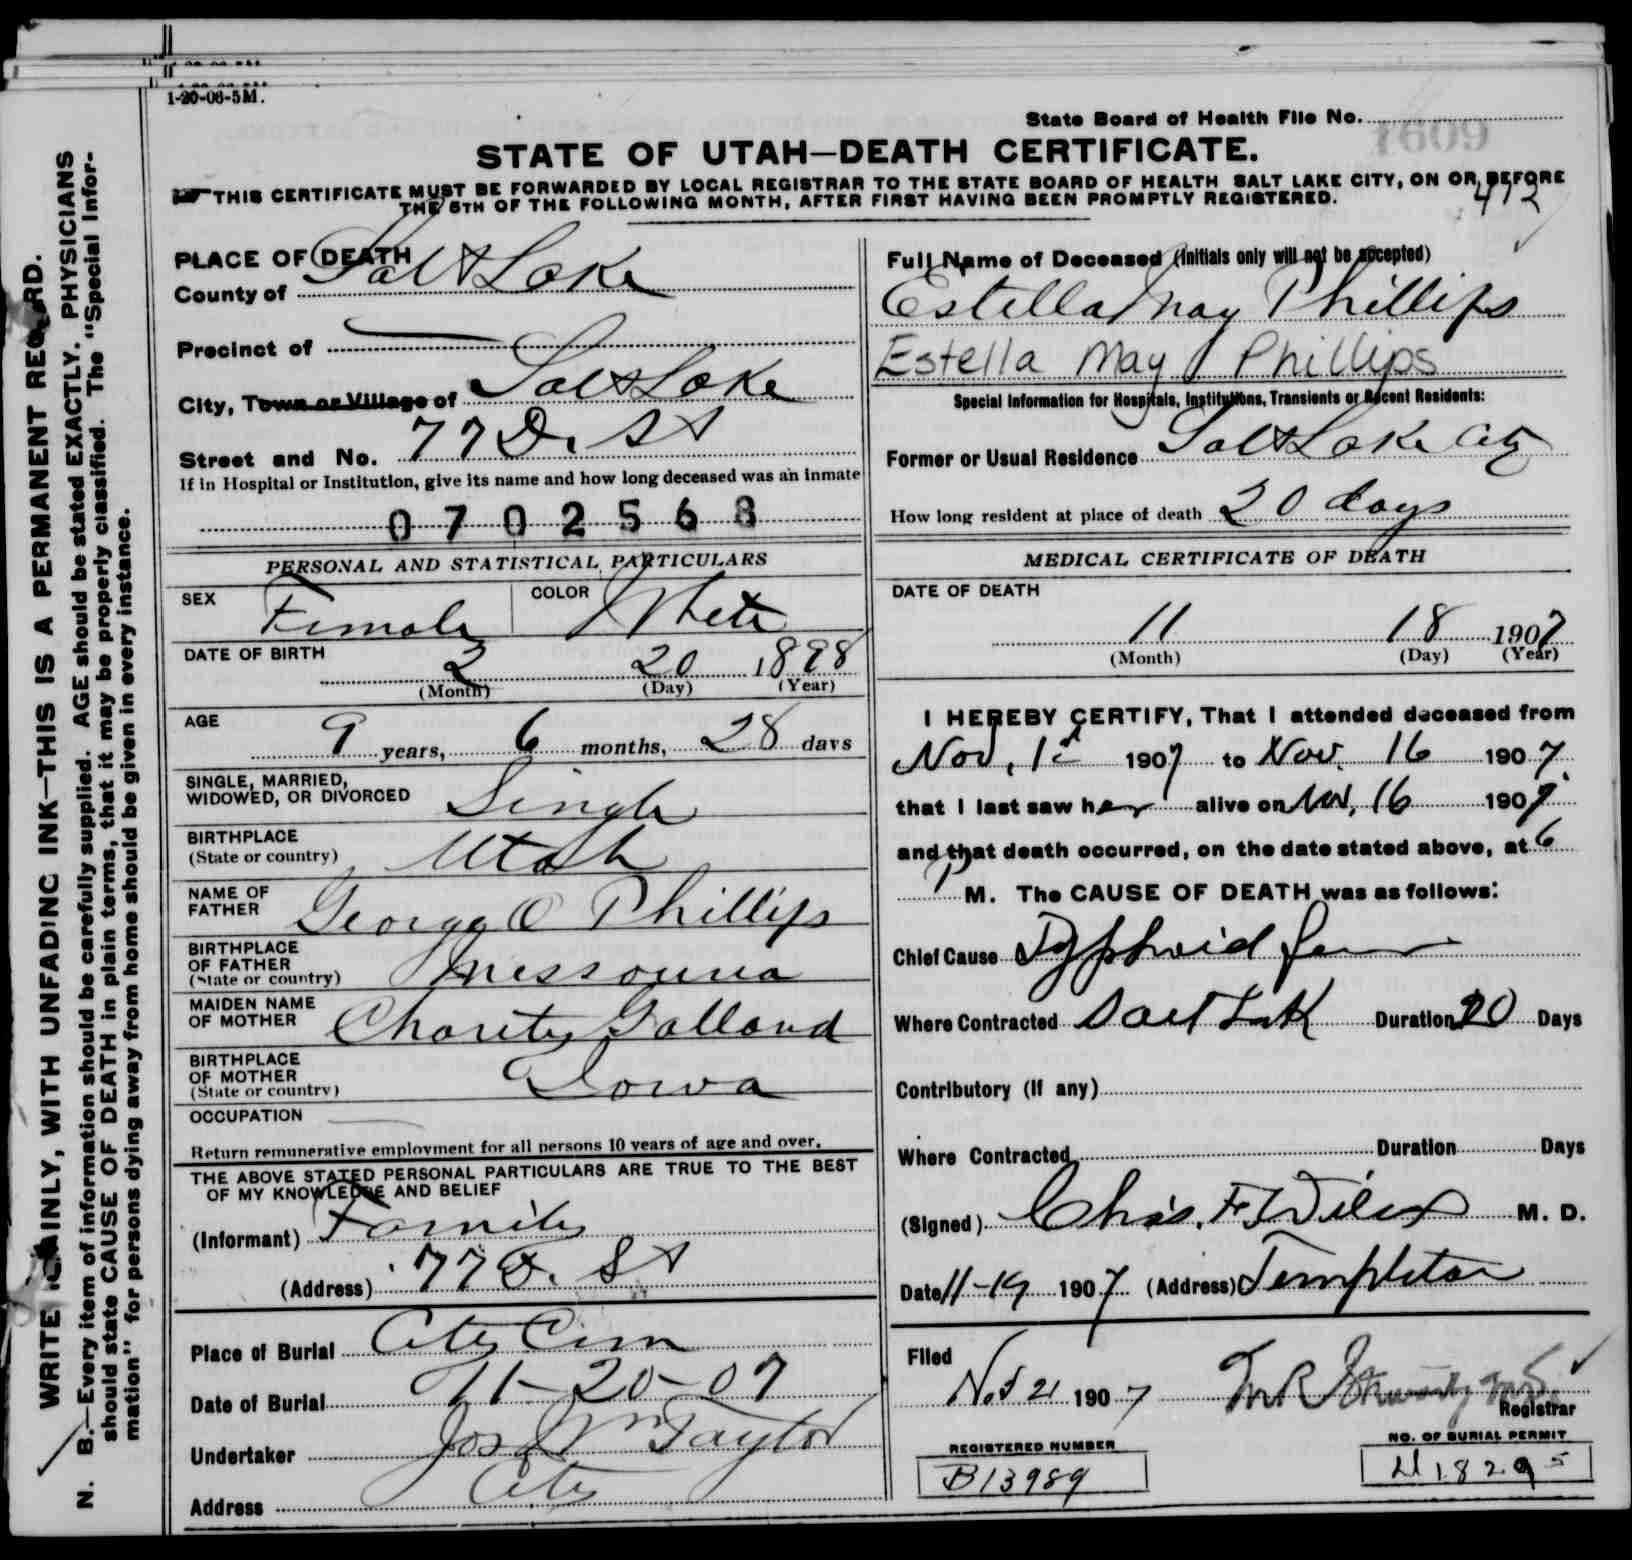 1-20-06-5M.
State Board of Health File No.
1609
STATE OF UTAH—DEATH CERTIFICATE.
THIS CERTIFICATE MUST BE FORWARDED BY LOCAL REGISTRAR TO THE STATE BOARD OF HEALTH SALT LAKE CITY, ON OR BEFORE
THE 5TH OF THE FOLLOWING MONTH, AFTER FIRST HAVING BEEN PROMPTLY REGISTERED.
412
WRITE PLAINLY, WITH UNFADING INK—THIS IS A PERMANENT RECORD.
N. B.—Every item of information should be carefully supplied. AGE should be stated EXACTLY. PHYSICIANS
should state CAUSE OF DEATH in plain terms, that it may be properly classified. The "Special Infor-
mation" for persons dying away from home should be given in every instance.
PLACE OF DEATH
County of Salt Lake
Precinct of
City, Town or Village of Salt Lake
Street and No. 77 D. St
If in Hospital or Institution, give its name and how long deceased was an inmate
0702568
PERSONAL AND STATISTICAL PARTICULARS
SEX Female COLOR White
DATE OF BIRTH 2 20 1898
(Month) (Day) (Year)
AGE 9 years, 6 months, 28 days
SINGLE, MARRIED,
WIDOWED, OR DIVORCED Single
BIRTHPLACE
(State or country) Utah
NAME OF
FATHER George O Phillips
BIRTHPLACE
OF FATHER
(State or country) Missouria
MAIDEN NAME
OF MOTHER Charity Galland
BIRTHPLACE
OF MOTHER
(State or country) Iowa
OCCUPATION
Return remunerative employment for all persons 10 years of age and over.
THE ABOVE STATED PERSONAL PARTICULARS ARE TRUE TO THE BEST
OF MY KNOWLEDGE AND BELIEF
(Informant) Family
(Address) 77 D. St
Place of Burial City Cem
Date of Burial 11-20-07
Undertaker Jos Wm Taylor
Address City
Full Name of Deceased (Initials only will not be accepted)
Estella May Phillips
Estella May Phillips
Special Information for Hospitals, Institutions, Transients or Recent Residents:
Former or Usual Residence Salt Lake City
How long resident at place of death 20 days
MEDICAL CERTIFICATE OF DEATH
DATE OF DEATH
11 18 1907
(Month) (Day) (Year)
I HEREBY CERTIFY, That I attended deceased from
Nov. 1st 1907 to Nov. 16 1907
that I last saw her alive on Nov. 16 1907
and that death occurred, on the date stated above, at 6
P M. The CAUSE OF DEATH was as follows:
Chief Cause Typhoid fever
Where Contracted Salt Lak Duration 20 Days
Contributory (If any)
Where Contracted Duration Days
(Signed) Chas. F. Wilcox M. D.
Date 11-19 1907 (Address) Templeton
Filed
Nov 21 1907
Registrar
REGISTERED NUMBER
B13989
NO. OF BURIAL PERMIT
18295